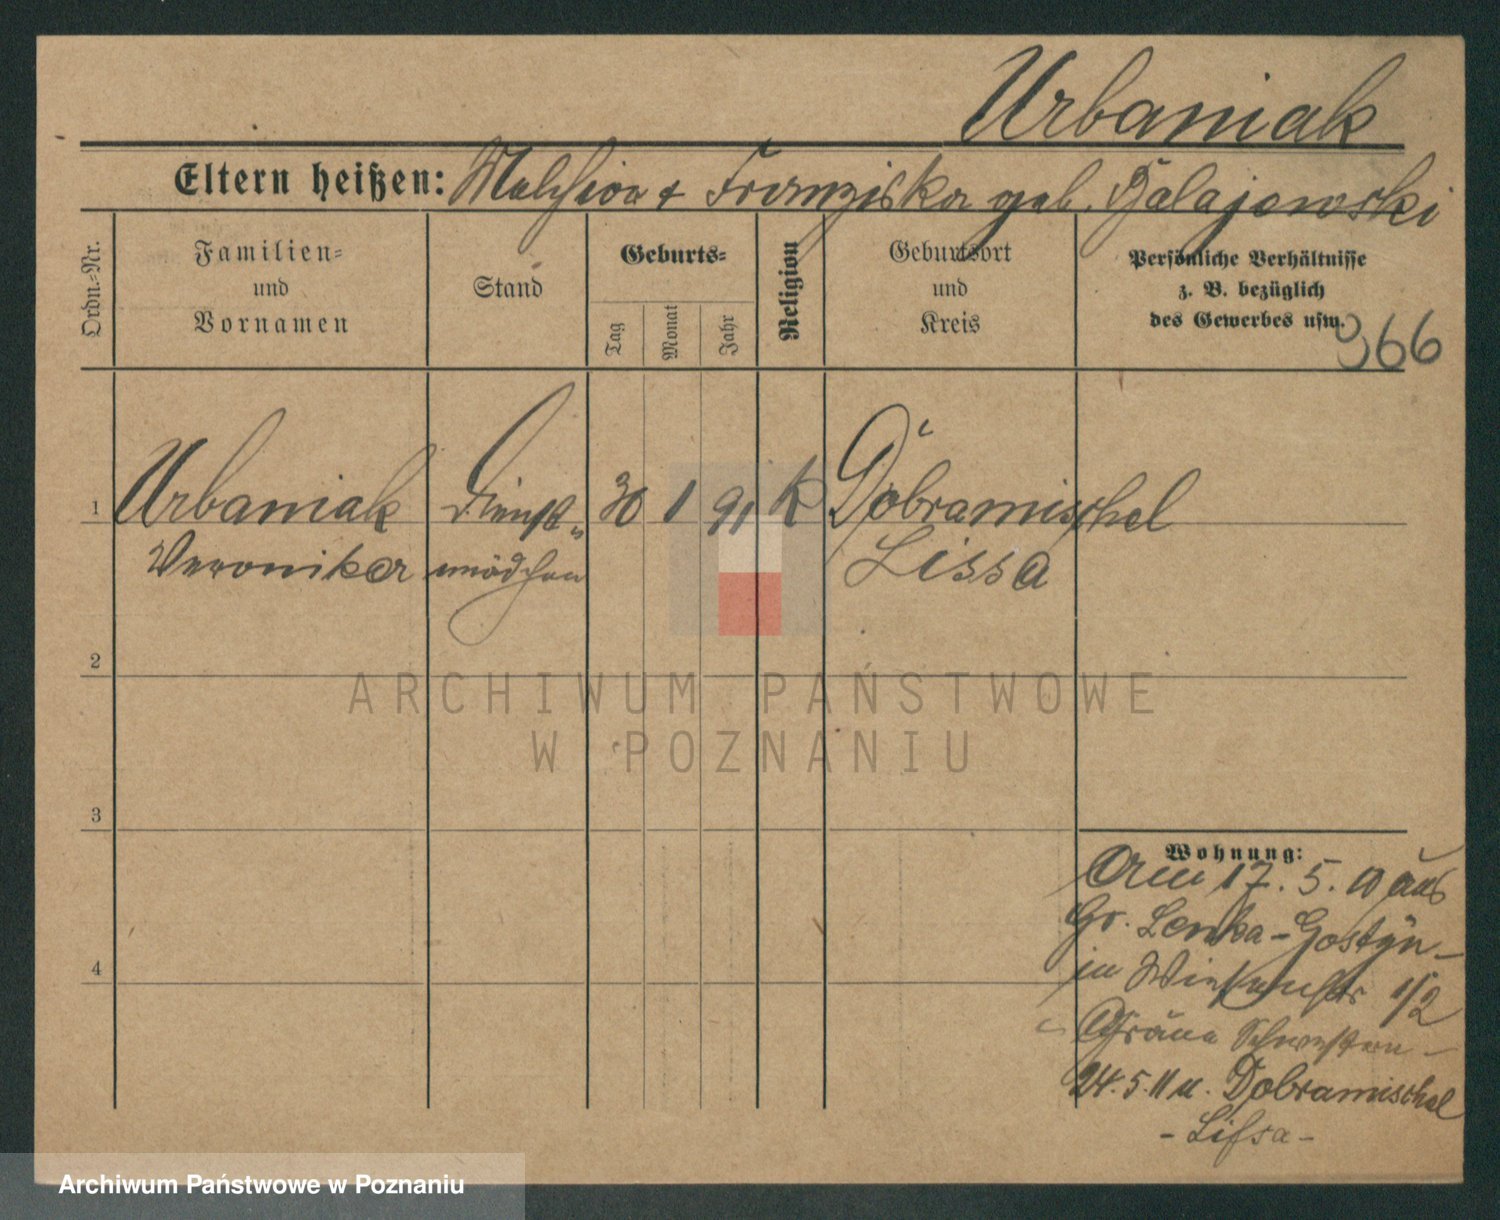 Urbaniak
Eltern heißen: Melchior & Franziska geb. Balajewski
Ordn.-Nr.
Familien-
und
Vornamen
Stand
Geburts-
Tag
Monat
Jahr
Religion
Geburtsort
und
Kreis
Persönliche Verhältnisse
z. B. bezüglich
des Gewerbes usw.
366
1 Urbaniak Dienst- 30 1 91 K Dobramischel
Veronika mädchen Lissa
2
3
4
Wohnung:
Am 17. 5. 10 aus
Gr. Lenka - Gostyn -
in 1/2
Graue Schwestern -
24. 5. 11 n. Dobramischel
- Lissa -
ARCHIWUM PAŃSTWOWE
W POZNANIU
Archiwum Państwowe w Poznaniu